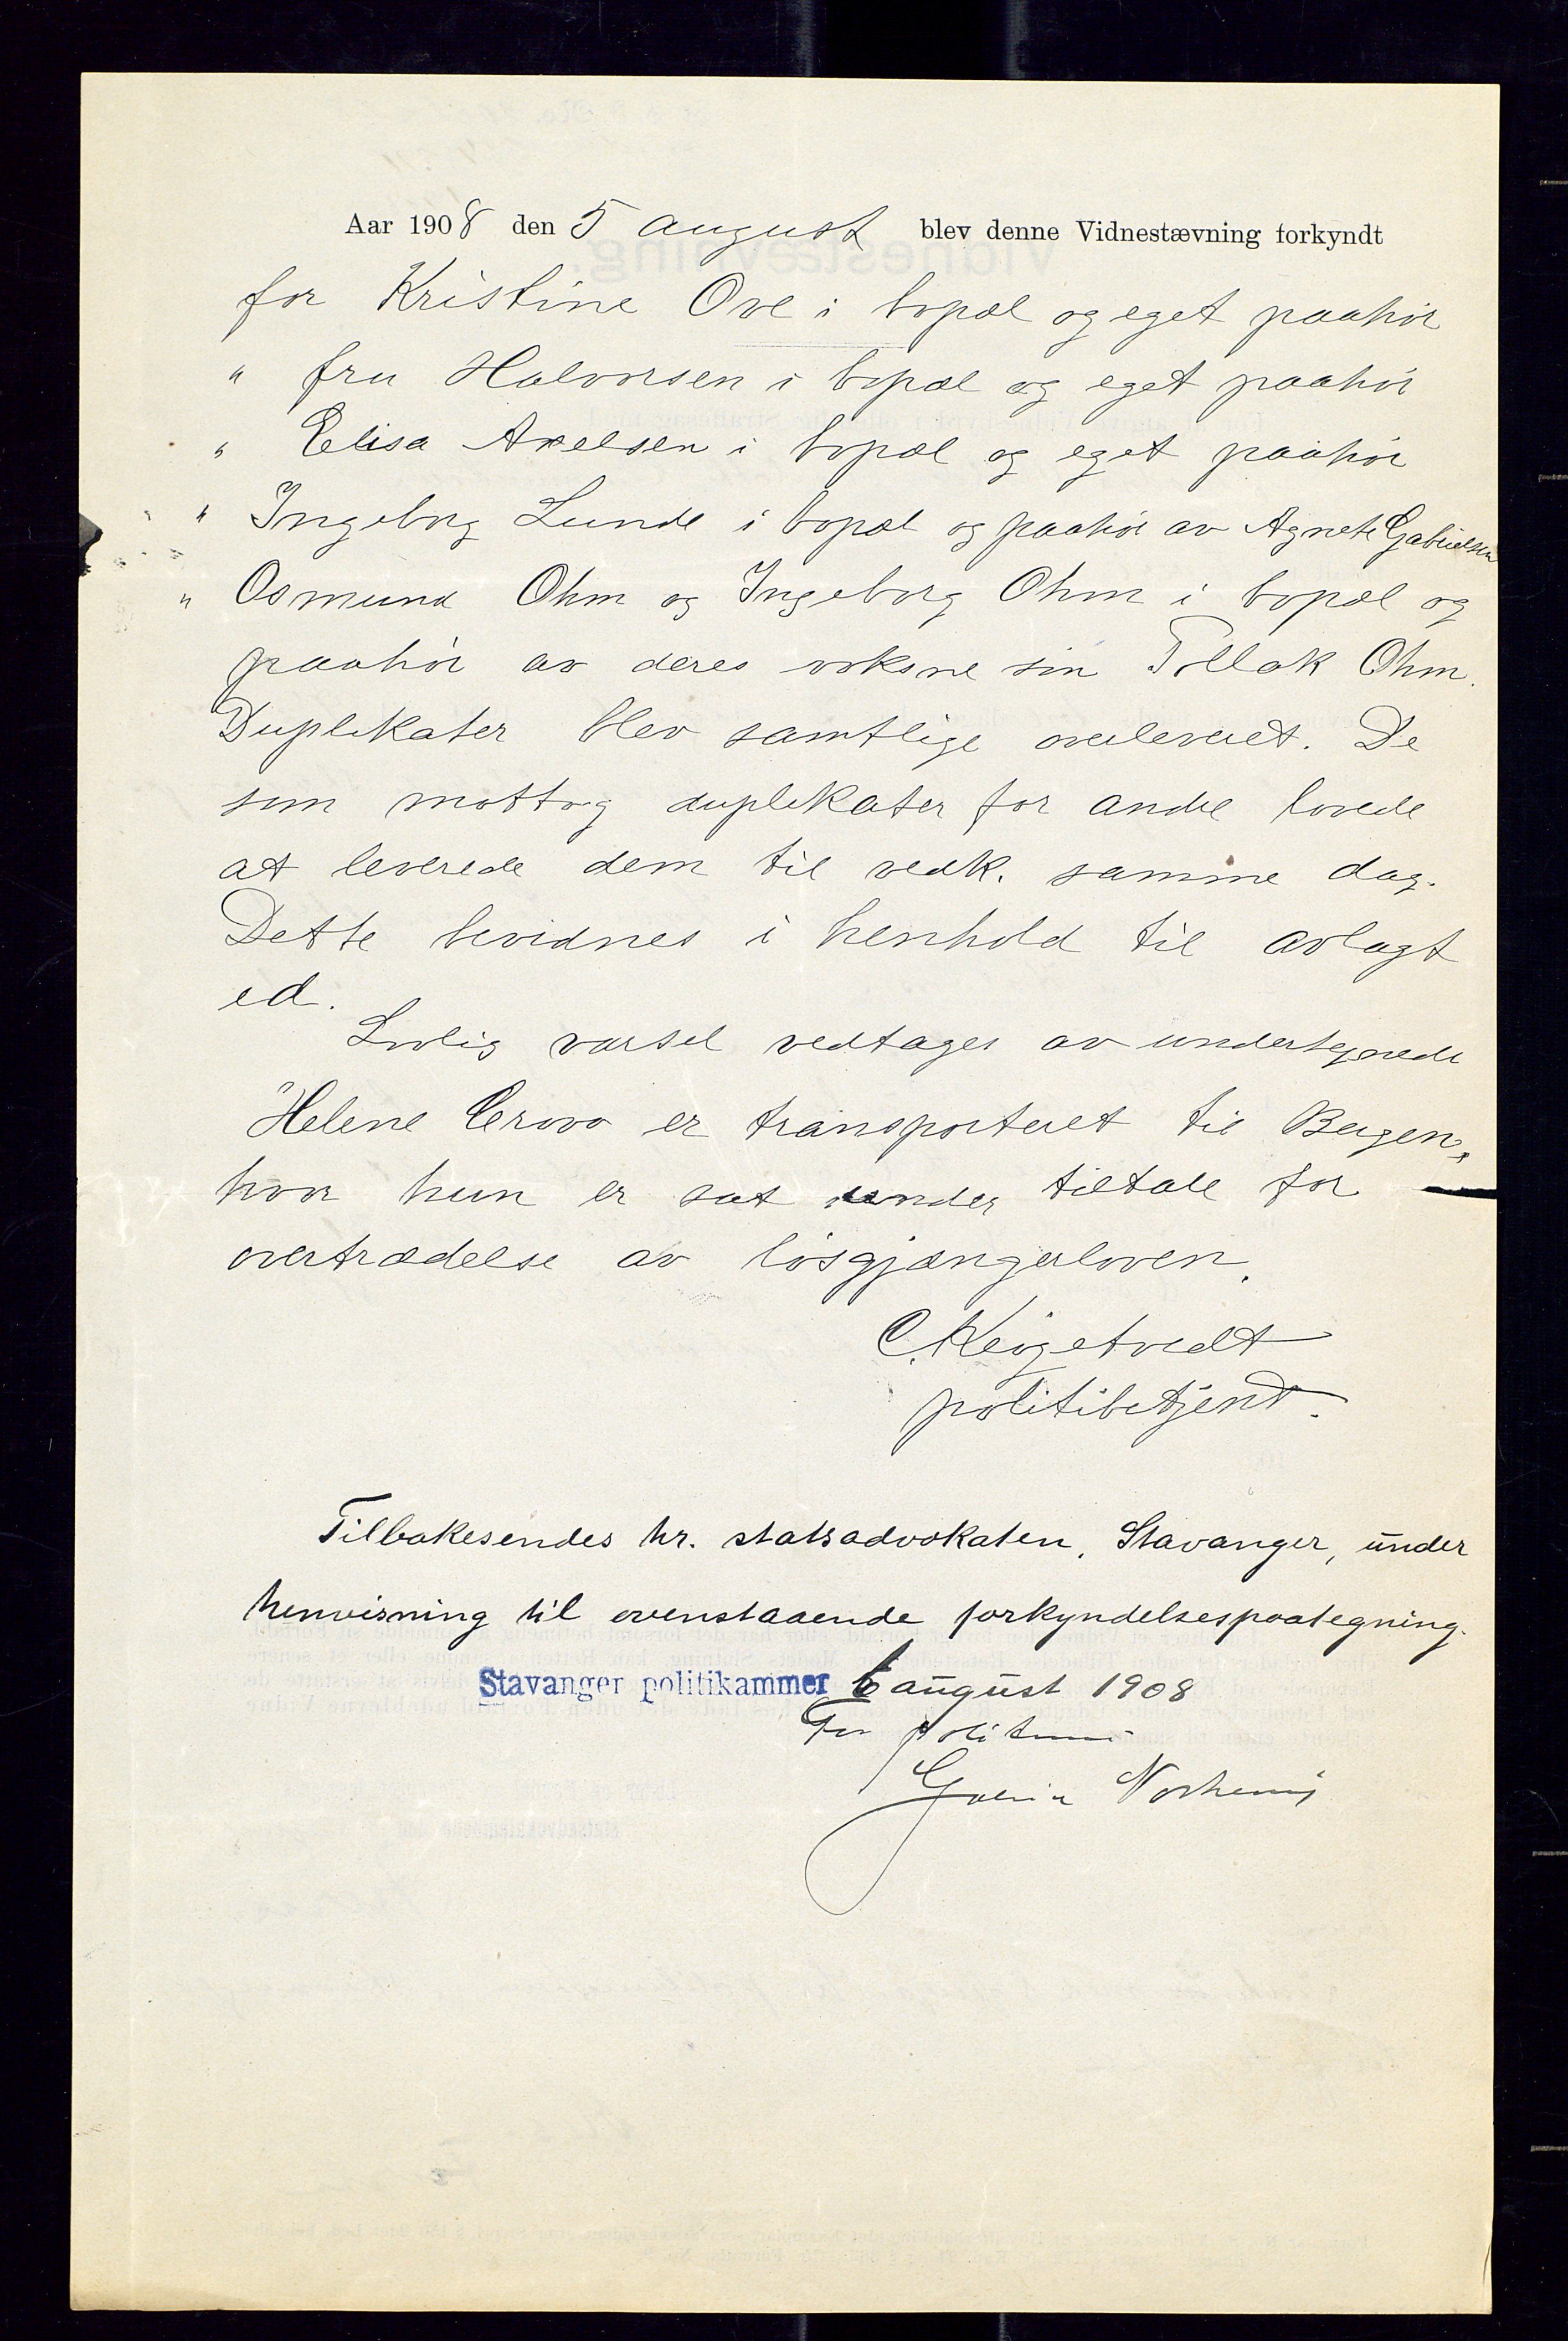 Aar 1908 den 5 august blev denne Vidnestævning forkyndt
for Kristine Ove i bopæl og eget paahör
" fru Halvorsen i bopæl og eget paahör
" Elisa Axelsen i bopæl og eget paahör
" Ingeborg Lunde i bopæl og paahör av Agnete Gabrielsen
" Osmund Ohm og Ingeborg Ohm i bopæl og
paahör av deres voksne sön Tollak Ohm.
Duplikater blev samtlige overleveret. De
som mottog duplikater for andre lovede
at leverede dem til vedk. samme dag.
Dette bevidnes i henhold til avlagt
ed.
Lovlig varsel vedtages av undertegnede
Helene Crovo er transporteret til Bergen,
hvor hun er sat under tiltale for
overtrædelse av lösgjængerloven.
politibetjent.
Tilbakesendes hr. statsadvokaten, Stavanger, under
henvisning til ovenstaaende forkyndelsespaategning.
Stavanger politikammer 6 august 1908
For politim